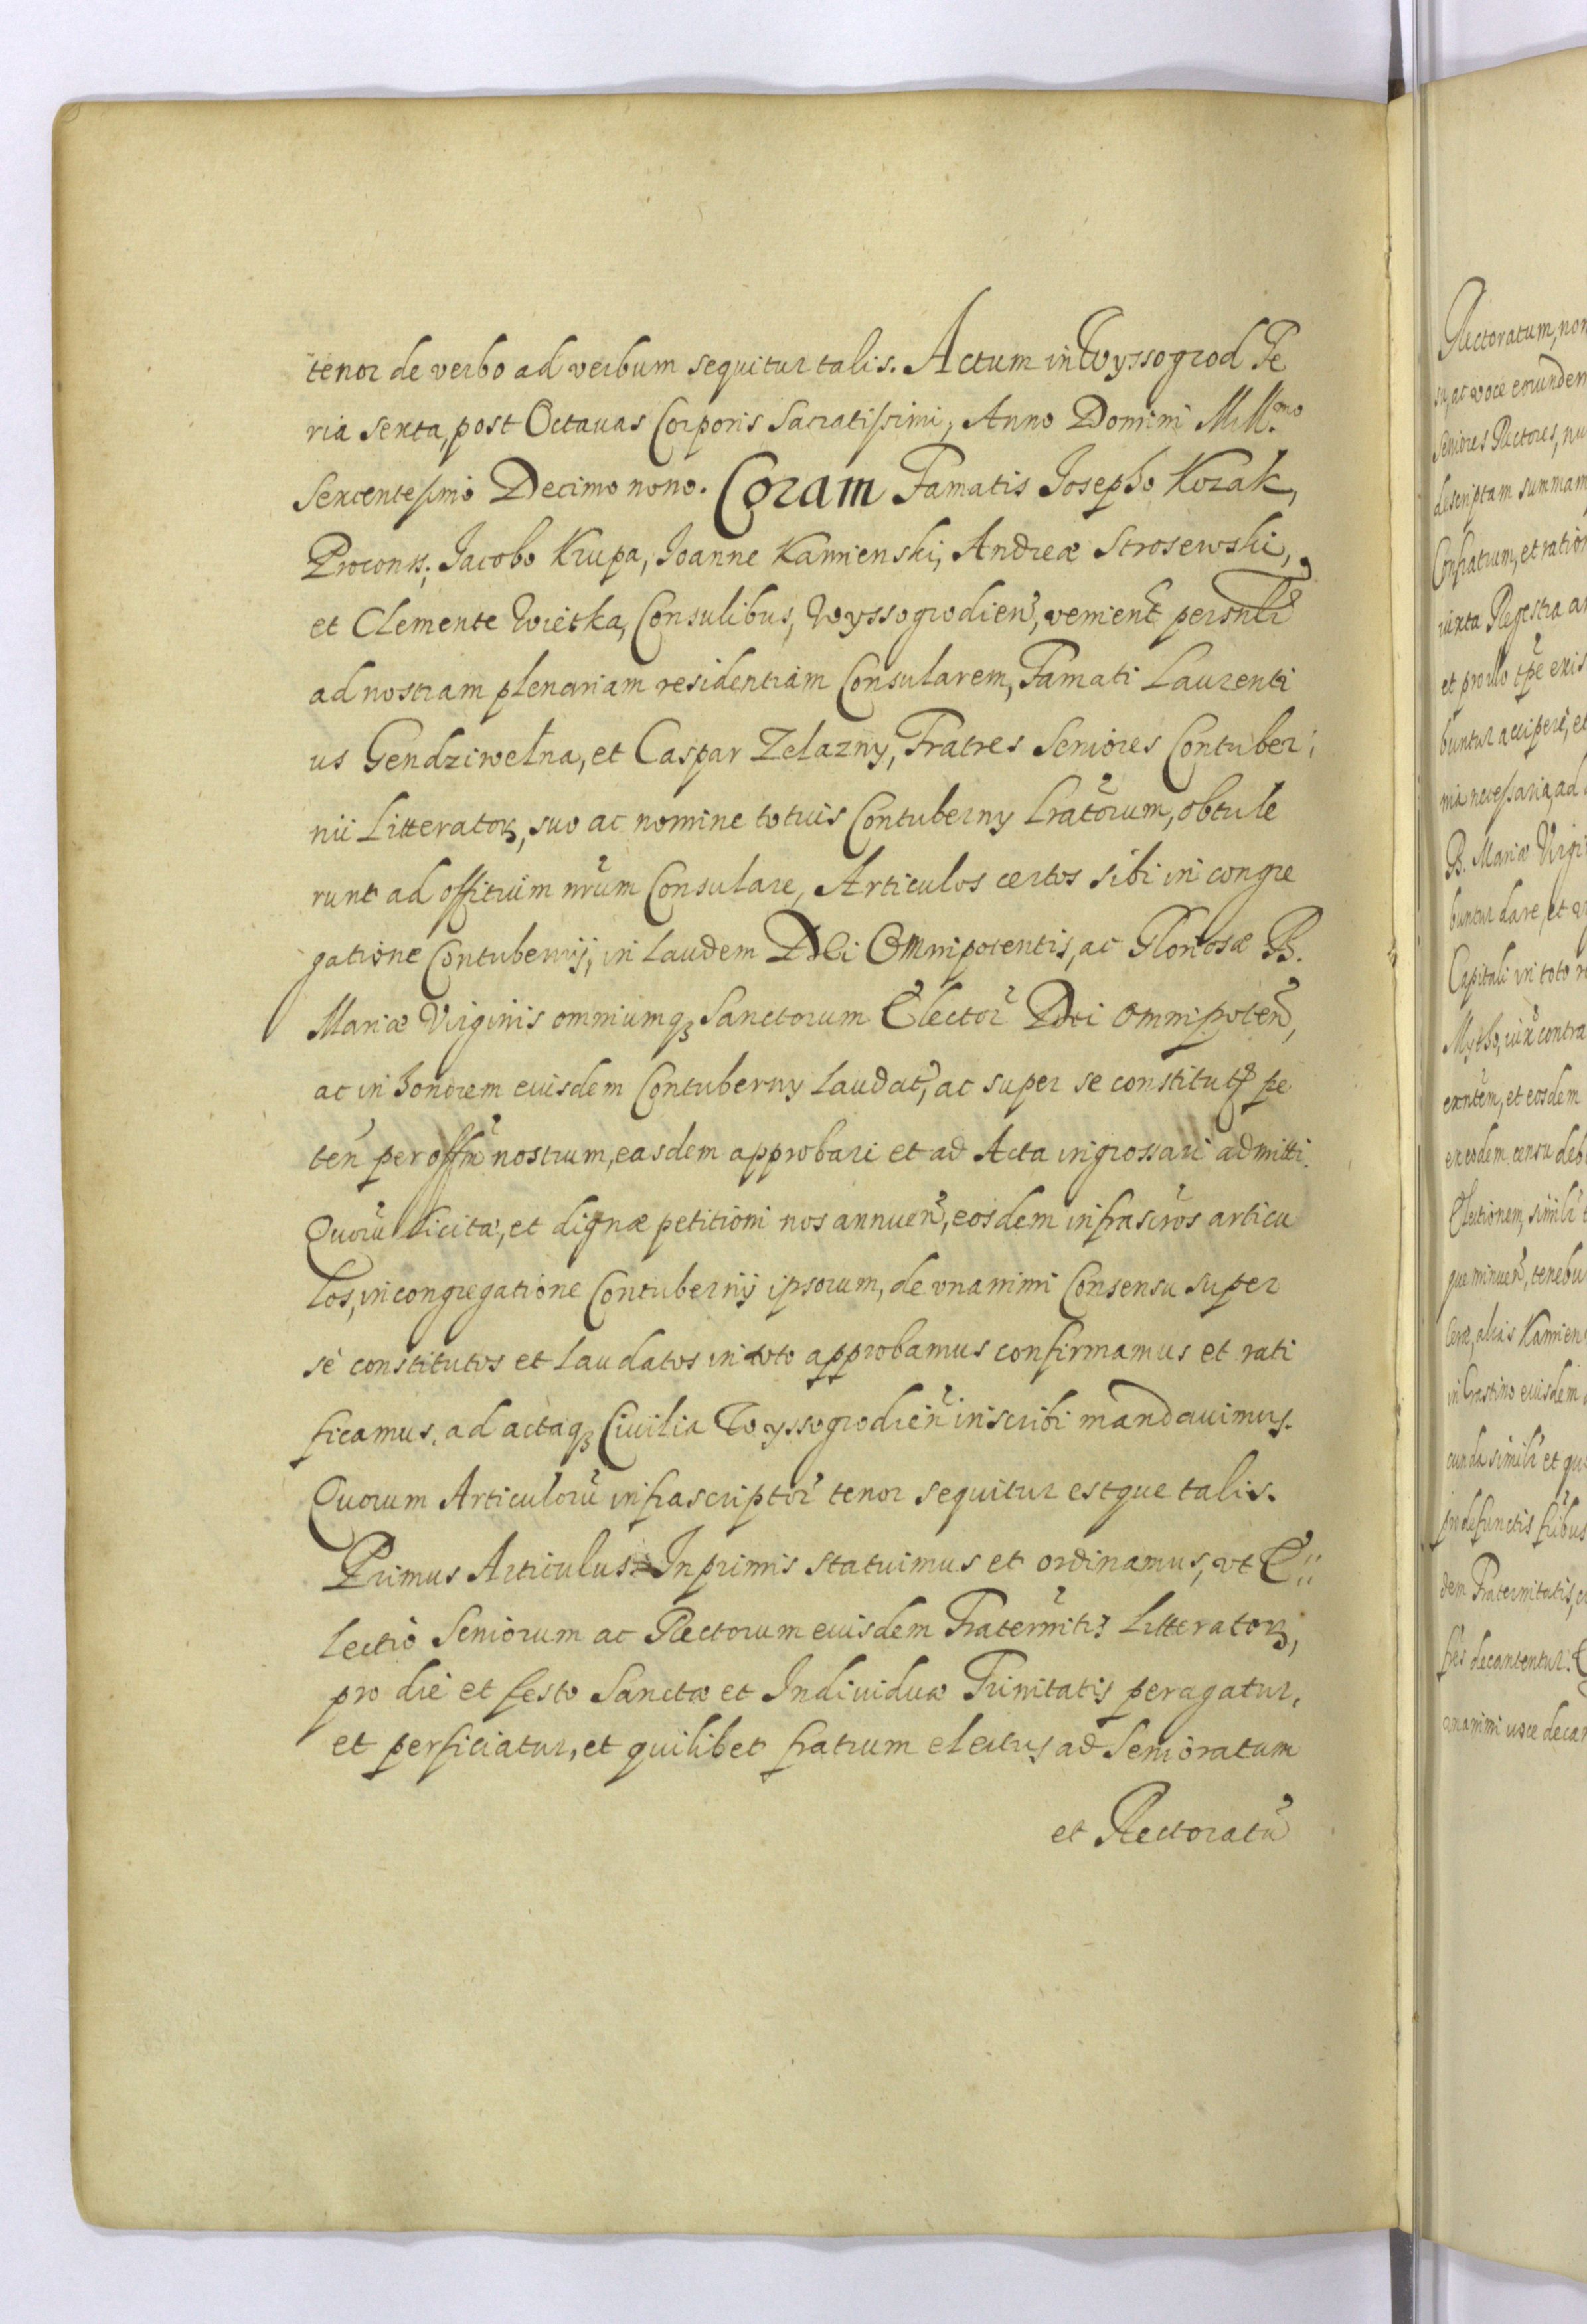 tenor de verbo ad verbum sequitur talis. Actum in Wyssogrod Fe
ria sexta, post Octauas Corporis Sacratissimi, Anno Domini Mill.mo
Sexcentesimo Decimo nono. Coram Famatis Josepho Kozak,
Procons; Jacobo Krupa, Joanne Kamienski, Andreæ Strosewski,
et Clemente Wietka, Consulibus, Wyssogrodien̄, venient̄ persnlr̄
ad nostram plenariam residentiam Consularem, Famati Laurenti
us Gendziwełna, et Caspar Zelazny, Fratres Seniores Contuber:
nii Litteratoꝝ, suo ac nomine totius Contuberny Lrātorum, obtule
runt ad offitium nrūm Consulare, Articulos certos sibi in congre
gatione Contubernij, in laudem Dei Omnipotentis, ac Gloriosæ B.
Mariæ Virginis omniumqꝫ Sanctorum Elector̄ Dei omnipoten̄,
ac in honorem eiusdem Contuberny laudat̄, ac super se constitut̄ pe
ten̄ per offm̄ nostrum, easdem approbari et ad Acta ingrossari admitti.
Quorū licitæ, et dignæ petitioni nos annuen̄, eosdem infrascr̄os articu
los, in congregatione Contubernij ipsorum, de vnanimi Consensu super
se constitutos et laudatos in toto approbamus confirmamus et rati
ficamus, ad actaqꝫ Ciuilia Wyssogrodien̄ inscribi mandauimus.
Quorum Articulorū infrascriptor̄ tenor sequitur estque talis.
Primus Articulus. Inprimis statuimus et ordinamus, vt E::
lectio Seniorum ac Rectorum eiusdem Fraternitis̄ Litteratoꝝ,
pro die et festo Sanctæ et Indiuiduæ Trinitatis peragatur,
et perficiatur, et quilibet fratrum electus ad Senioratum
et Rectoratū
Rectoratum, non
su, ac voce eorundem
Seniores Rectores, nu
descriptam summam
Confratrum, et ration
iuxta Regestra a
et pro illo tp̄e exis
buntur accipere, et
nia necessaria, ad
B. Mariæ Virgi
buntur dare, et
Capitali in toto r
contra
et eosdem
ex eodem censu deb
Electionem, simili
que minuen̄, tenebu
Ceræ, alias Kamien
in Crastino eiusdem
cunda simili et qu
defunctis fribus
dem Fraternitatis,
frēs decantentur.
vnanimi voce decan